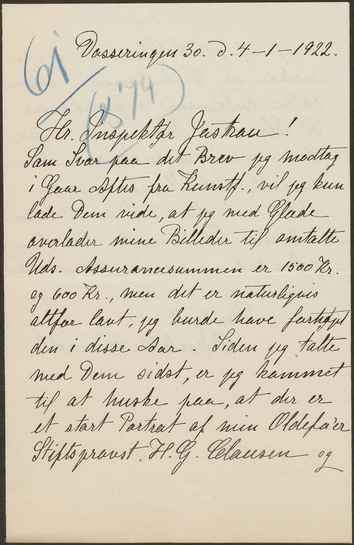 Dosseringen 30. d. 4-1-1922.
61
Hr. Inspektør Jastrau!
Som Svar paa det Brev jeg modtog
i Gaar Aftes fra Kunstf., vil jeg kun
lade Dem vide, at jeg med Glæde
overlader mine Billeder til omtalte
Uds. Assurancesummen er 1500 Kr.
og 600 Kr., men det er naturligvis
altfor lavt, jeg burde have forhøjet
den i disse Aar. Siden jeg talte
med Dem sidst, er jeg kommet
til at huske paa, at der er
et stort Portræt af min Oldefa'er
Stiftsprovst. H. G. Clausen og